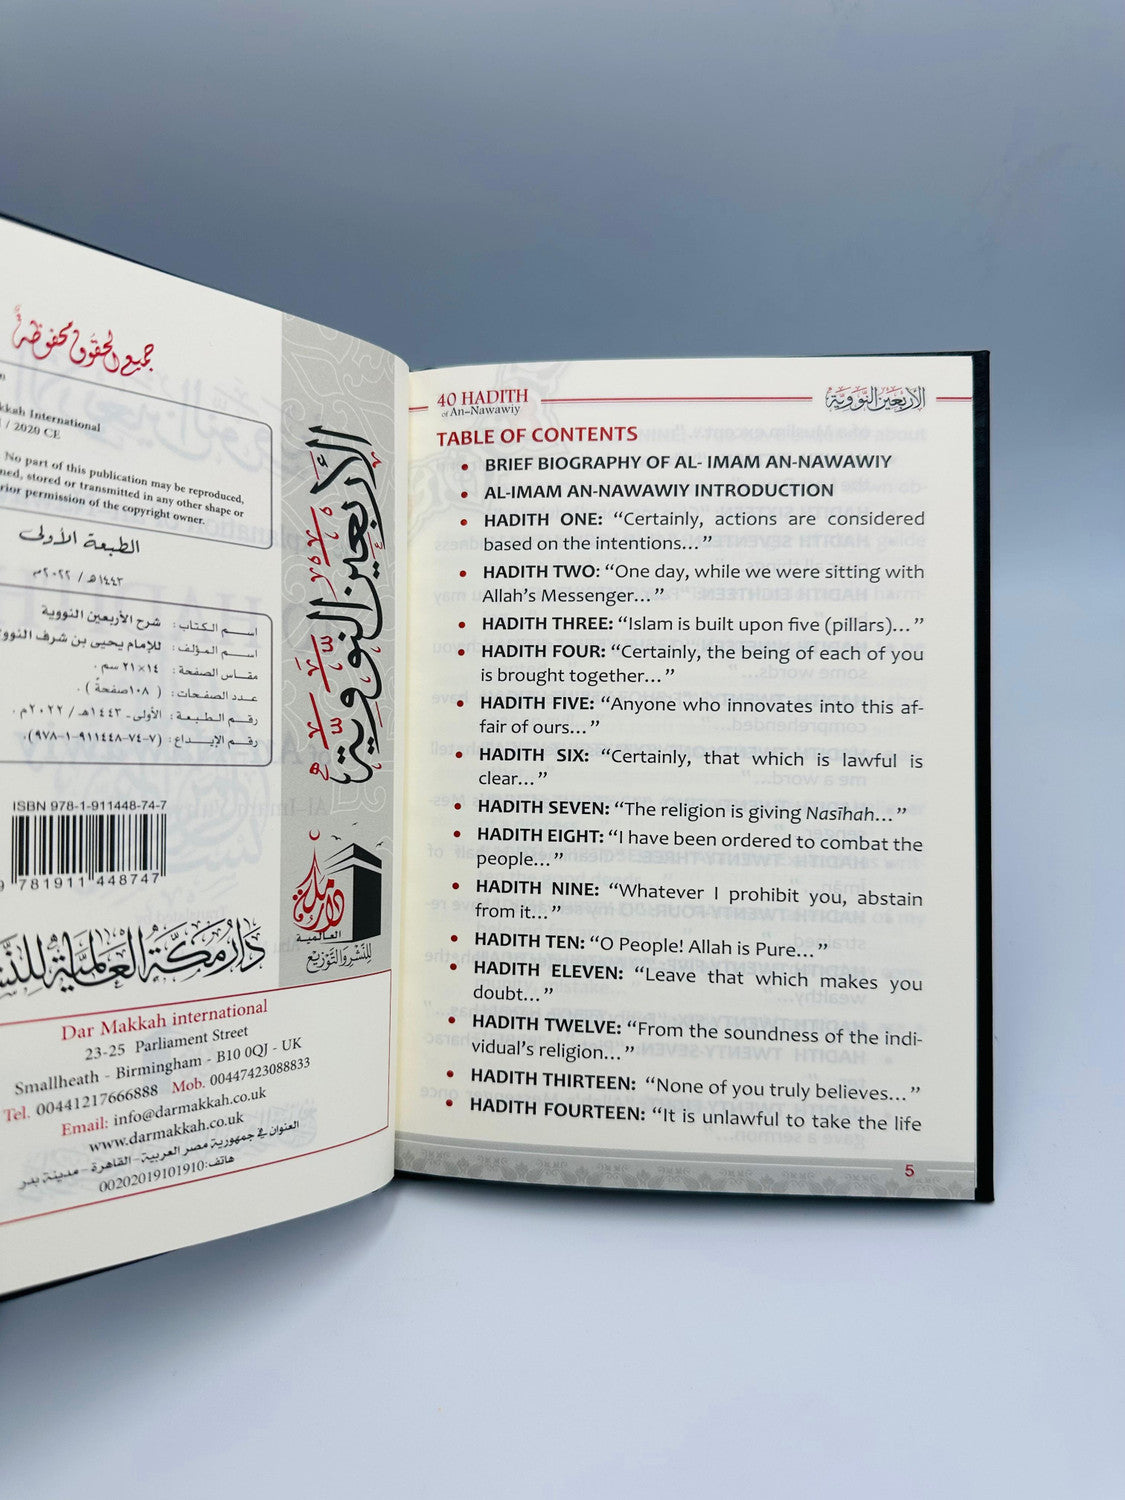 جميع الحقوق محفوظة
kkah International
/ 2020 CE
No part of this publication may be reproduced,
stored or transmitted in any other shape or
permission of the copyright owner.
الطبعة الأولى
١٤٤٣هـ / ٢٠٢٢م
اسم الكتاب : شرح الأربعين النووية
اسم المؤلف : للإمام يحيى بن شرف النووي
مقاس الصفحة : ١٤×٢١ سم .
عدد الصفحات : ( ١٠٨صفحة ) .
رقم الطبعة : الأولى- ١٤٤٣هـ / ٢٠٢٢م .
رقم الإيداع : (٩٧٨-١-٩١١٤٤٨-٧٤-٧).
ISBN 978-1-911448-74-7
9 781911 448747
دار مكة العالمية للنشر
Dar Makkah international
23-25 Parliament Street
Smallheath - Birmingham - B10 0QJ - UK
Tel. 00441217666888 Mob. 00447423088833
Email: info@darmakkah.co.uk
www.darmakkah.co.uk
العنوان في جمهورية مصر العربية - القاهرة - مدينة بدر
هاتف:00202019101910
الأربعين النووية
دار مكة
العالمية
للنشر والتوزيع
40 HADITH
of An-Nawawiy
الأربعين النووية
TABLE OF CONTENTS
• BRIEF BIOGRAPHY OF AL- IMAM AN-NAWAWIY
• AL-IMAM AN-NAWAWIY INTRODUCTION
• HADITH ONE: “Certainly, actions are considered
based on the intentions...”
• HADITH TWO: “One day, while we were sitting with
Allah’s Messenger...”
• HADITH THREE: “Islam is built upon five (pillars)...”
• HADITH FOUR: “Certainly, the being of each of you
is brought together...”
• HADITH FIVE: “Anyone who innovates into this af-
fair of ours...”
• HADITH SIX: “Certainly, that which is lawful is
clear...”
• HADITH SEVEN: “The religion is giving Nasihah...”
• HADITH EIGHT: “I have been ordered to combat the
people...”
• HADITH NINE: “Whatever I prohibit you, abstain
from it...”
• HADITH TEN: “O People! Allah is Pure...”
• HADITH ELEVEN: “Leave that which makes you
doubt...”
• HADITH TWELVE: “From the soundness of the indi-
vidual’s religion...”
• HADITH THIRTEEN: “None of you truly believes...”
• HADITH FOURTEEN: “It is unlawful to take the life
5